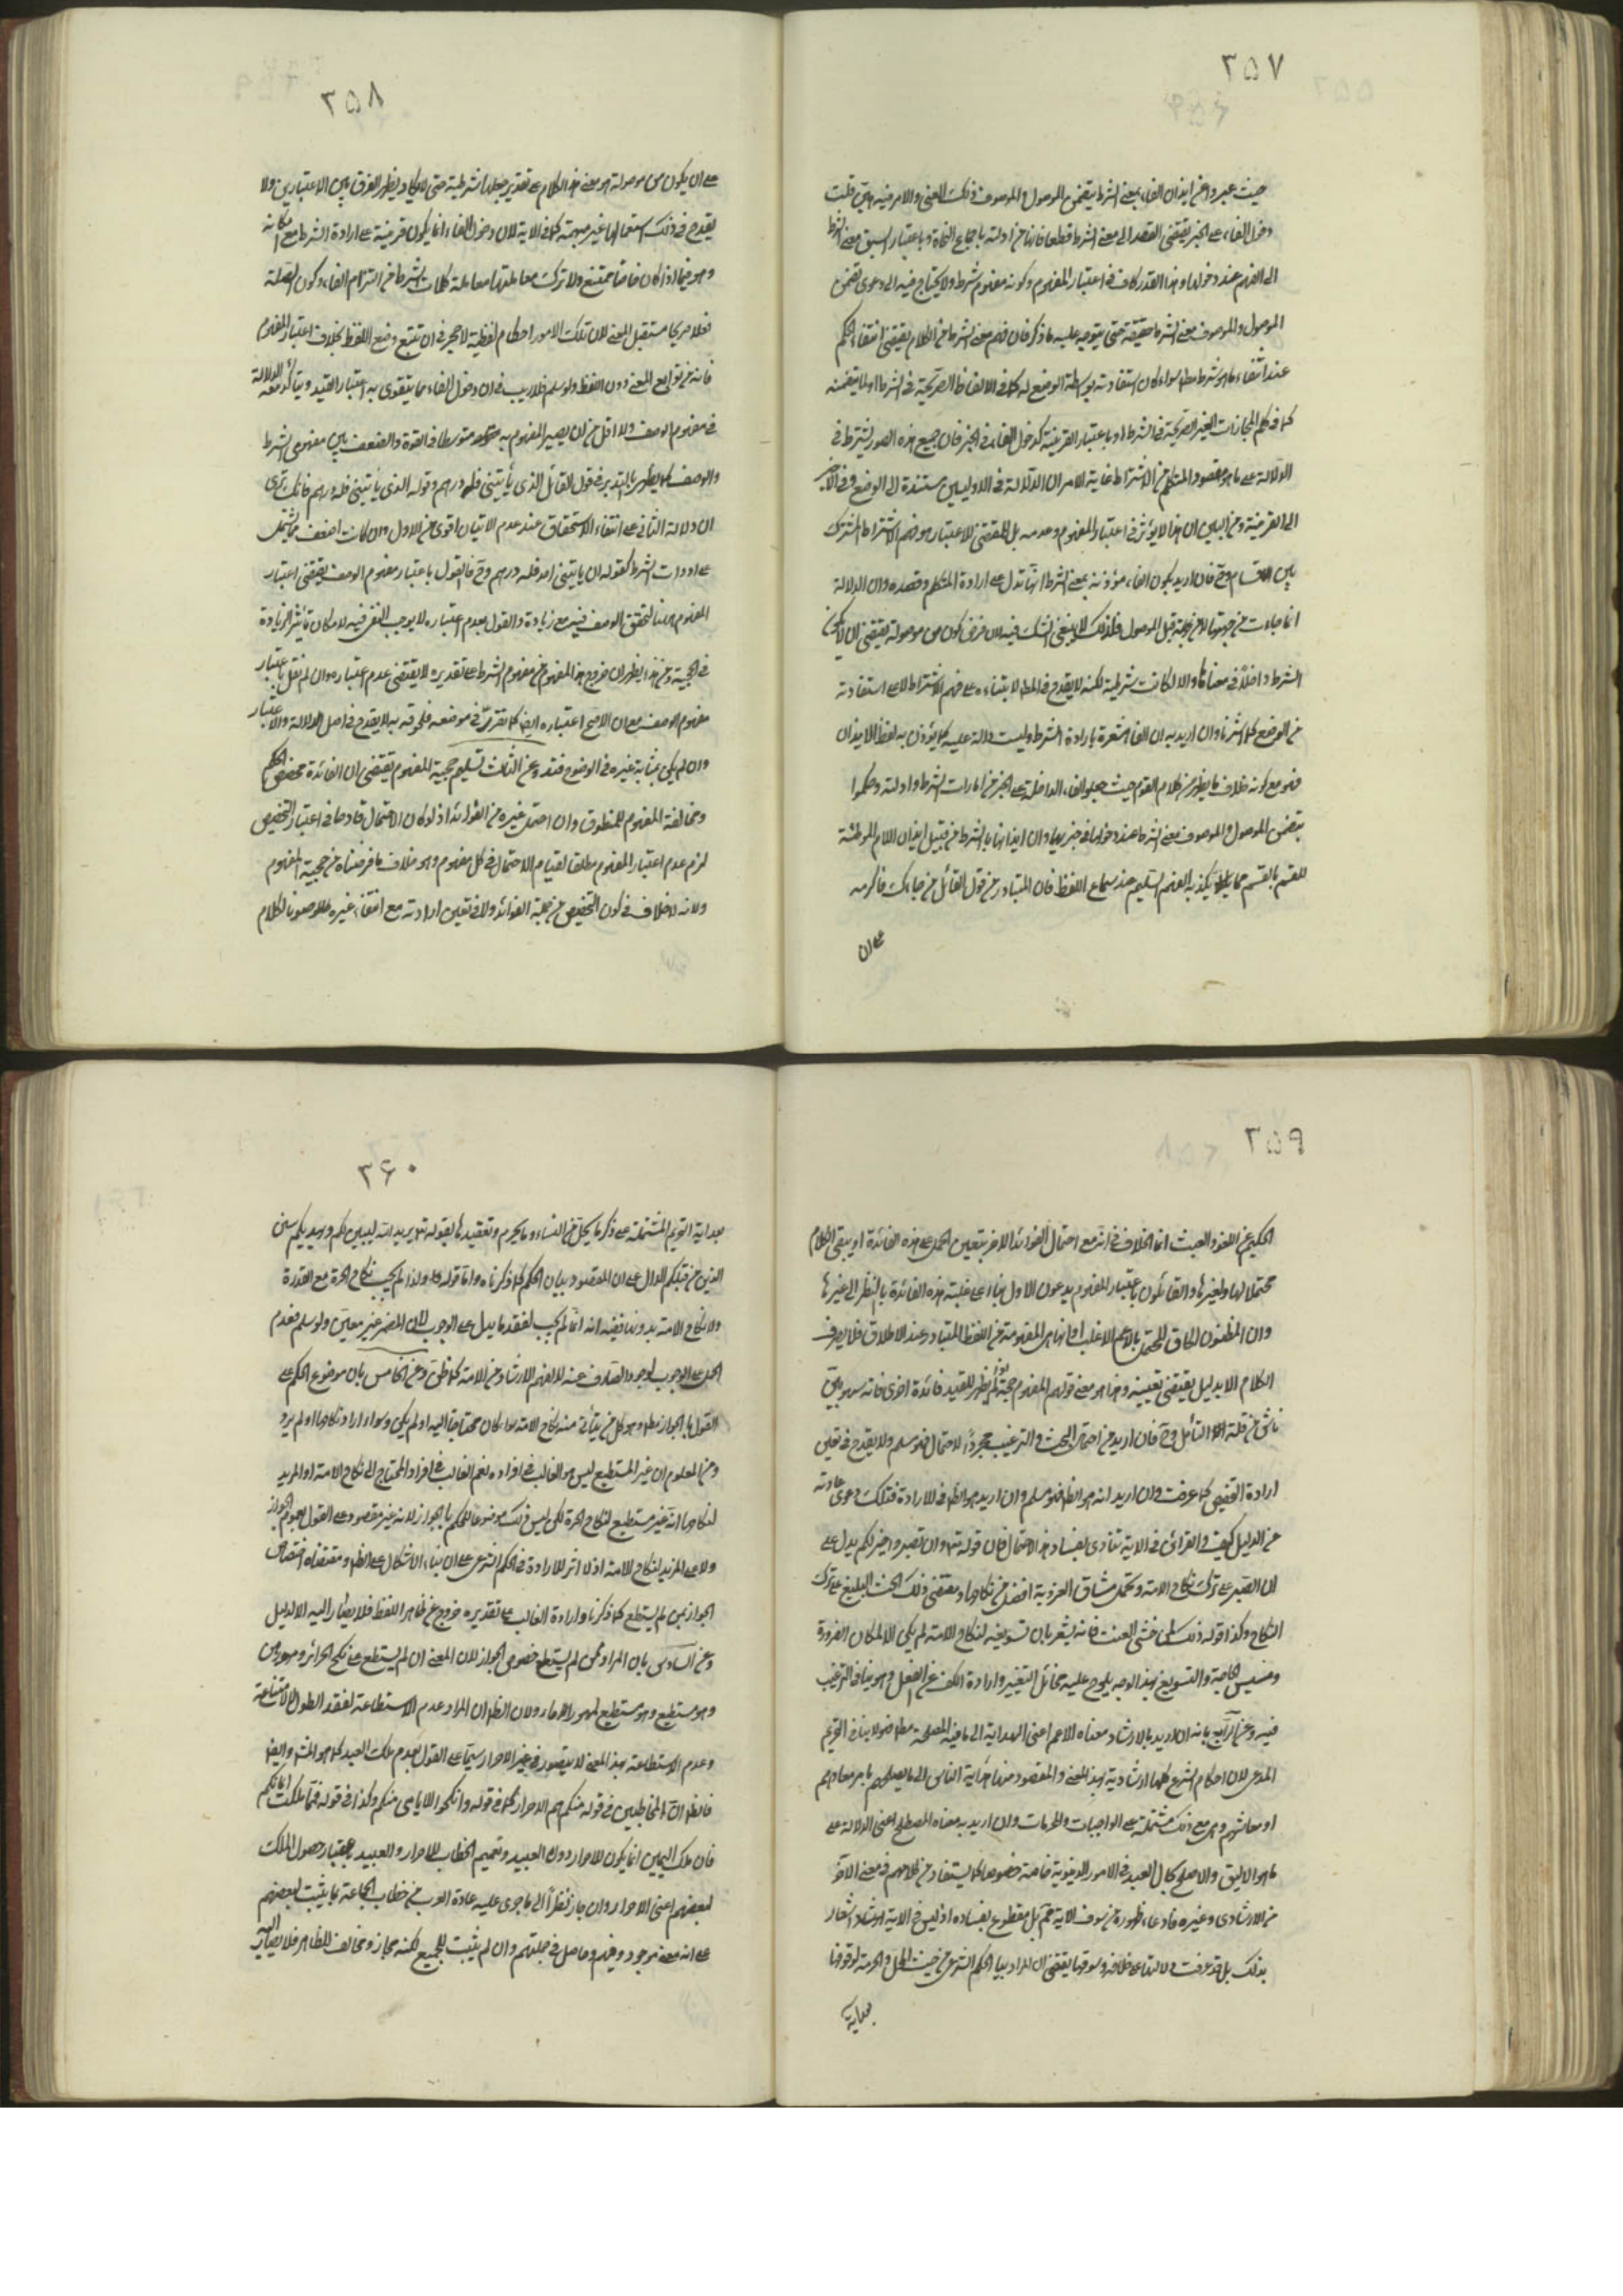 ٣٥٧
حيث عبروا عن ايذان الفاء بمعنى الشرط بتضمن الموصول والموصوف ذلك المعنى والامر فيه هين قلت
دخول الفاء على الخبر يقتضى القصد الى معنى الشرط قطعا فانها من ادلته باجماع النحاة وباعتبار سبق معنى الشرط
الى الفهم عند دخولها وهذا القدر كاف فى اعتبار المفهوم وكونه مفهوم شرط ولا يحتاج فيه الى دعوى تضمن
الموصول والموصوف معنى الشرط حقيقة حتى يتوجه عليه ما ذكر فان فهم معنى الشرط من الكلام يقتضى انتفاء الحكم
عند انتفاء ما هو شرط مطلقا سواء كان استفادته بواسطة الوضع له كما فى الالفاظ الصريحة فى الشرط او لما يتضمنه
كما فى كلم المجازات الغير الصريحة فى الشرط او باعتبار القرينة كدخول الفاء فى الخبر فان جميع هذه الصور يشترط فى
الدلالة على ما هو مقصود المتكلم من الاشتراط غاية الامر ان الدلالة فى الاوليين مستندة الى الوضع وفى الاخير
الى القرينة ومن البين ان هذا لا يؤثر فى اعتبار المفهوم وعدمه بل المقتضى للاعتبار هو فهم الاشتراط المشترك
بين الاقسام وح فان اريد بكون الفاء مؤذنة بمعنى الشرط انها تدل على ارادة المتكلم وقصده وان الدلالة
انما جاءت من جهتها لا من جهة قبل الموصول فذلك لا ينبغى الشك فيه لان فرض كون من موصولة يقتضى ان لا يكون
الشرط داخلا فى معناها والا لكانت شرطية لكنه لا يقدح فى المط لابتنائه على فهم الاشتراط لا على استفادته
من الوضع كما اشرنا وان اريد به ان الفاء مشعرة بارادة الشرط وليست دالة عليه كما يؤذن به لفظ الايذان
فهو مع كونه خلاف ما يظهر من كلام القوم حيث جعلوا الفاء الداخلة على الخبر من امارات الشرط وادلته وحكموا
بتضمن الموصول والموصوف معنى الشرط عند دخولها فى خبريهما وان ايذانها بالشرط من قبيل ايذان اللام الموطئة
للقسم بالقسم مما يكذبه الفهم السليم عند سماع اللفظ فان المتبادر من قول القائل من جاءك فاكرمه
على ان
٣٥٨
على ان يكون من موصولة هو معنى هذا الكلام على تقدير جعلها شرطية حتى لا يكاد يظهر الفرق بين الاعتبارين ولا
يقدح فى ذلك استعمالها غير مبهمة كما فى الاية لان دخول الفاء انما يكون قرينة على ارادة الشرط مع امكانه
وهو فيما اذا كان خاصا ممتنع ولا ترك معاملتها معاملة كلمات الشرط من التزام الفاء وكون الصلة
فعلا صريحا مستقبل المعنى لان تلك الامور احكام لفظية لا حجر فى ان تتبع وضع اللفظ بخلاف اعتبار المفهوم
فانه من توابع المعنى دون اللفظ ولو سلم فلا ريب فى ان دخول الفاء مما يتقوى به اعتبار القيد ويتأكد معه الدلالة
فى مفهوم الوصف ولا اقل من ان يصير المفهوم به متوسطا فى القوة والضعف بين مفهومى الشرط
والوصف كما يظهر بالتدبر فى قول القائل الذى يأتينى فله درهم وقوله الذى يأتينى له درهم فانك ترى
ان دلالة الثانى على انتفاء الاستحقاق عند عدم الاتيان اقوى من الاول وان كانت اضعف مما يشتمل
على ادوات الشرط كقوله ان ياتينى احد فله درهم وح فالقول باعتبار مفهوم الوصف يقتضى اعتبار
المفهوم هنا لتحقق الوصف فيه مع زيادة والقول بعدم اعتباره لا يوجب النفى فيه لامكان تأثير الزيادة
فى الحجية ومن هنا يظهر ان خروج هذا المفهوم من مفهوم الشرط على تقديره لا يقتضى عدم اعتباره وان لم نقل باعتبار
مفهوم الوصف مع ان الاصح اعتباره ايضا كما تقرر فى موضعه فلحوقه به لا يقدح فى اصل الدلالة والاعتبار
وان لم يكن بمثابة غيره فى الوضوح فتدبر وعن الثالث تسليم حجية المفهوم يقتضى ان الفائدة تخصيص الحكم
ومخالفة المفهوم للمنطوق وان احتمل غيره من الفوائد اذ لو كان الاحتمال قادحا فى اعتبار التخصيص
لزم عدم اعتبار المفهوم مطلقا لقيام الاحتمال فى كل مفهوم وهو خلاف ما فرضناه من حجية المفهوم
ولانه لا خلاف فى كون التخصيص من جملة الفوائد ولا فى تعين ارادته مع انتفاء غيره صونا لكلام
٣٥٩
الحكيم عن اللغو والعبث انما الخلاف فى انه مع احتمال الفوائد الاخر يتعين الحمل على هذه الفائدة او يبقى الكلام
محتملا لها ولغيرها والقائلون باعتبار المفهوم يدعون الاول بناء على غلبة هذه الفائدة بالنظر الى غيرها
وان المظنون الحاق المحتمل بالاعم الاغلب او انها هى المفهومة من اللفظ المتبادر عند الاطلاق فلا يصرف
الكلام الا بدليل يقتضى تعيينه وهذا هو معنى قولهم المفهوم حجة لو لم يظهر للقيد فائدة اخرى فانه سهو بين
ناش من قلة التأمل وح فان اريد من احتمال البحث والترغيب مجرد الاحتمال فهو مسلم ولا يقدح فى تعين
ارادة التخصيص كما عرفت وان اريد انه هو الظ فهو مسلم وان اريد هو الظ فى الارادة فتلك دعوى عارية
عن الدليل كيف والقرائن فى الاية تنادى بفساد هذا الاحتمال فان قوله تعالى وان تصبروا خير لكم يدل على
ان الصبر على ترك نكاح الامة وتحمل مشاق العزوبة افضل من نكاحها ومقتضى ذلك الحث البليغ على ترك
النكاح وكذا قوله ذلك لمن خشى العنت فانه يشعر بان تسويغه لنكاح الامة لم يكن الا لمكان الضرورة
ومسيس الحاجة والتسويغ بهذا الوجه يلوح عليه مخائل التغيير وارادة الكف عن الفعل وهو ينافى الترغيب
فيه وعن الرابع بانه ان اريد بالارشاد معناه الاعم اعنى الهداية الى ما فيه المصلحة مطلقا فهو لا ينافى التحريم
المدعى لان احكام الشرع كلها ارشادية بهذا المعنى والمقصود منها هداية الناس الى ما يصلحهم بامر معادهم
او معاشهم وهى مع ذلك مشتملة على الواجبات والمحرمات وان اريد به معناه المصطلح اعنى الدلالة على
ما هو الاليق والاصلح بحال العبد فى الامور الدنيوية خاصة خصوصا كما يستفاد من كلامهم فى معنى الامر
الارشادى وغيره فادعاء ظهوره من سوق الاية محل بل مقطوع بفساده اذ ليس فى الاية ارشاد اشعار
بذلك بل قد عرفت دلالتها على خلافه وسوقها يقتضى ان المراد بيان الحكم الشرعى من حيث الحل والحرمة لوقوعها
بعداية
٣۶٠
بعداية التحريم المشتملة على ذكر ما يحل من النساء وما يحرم وتعقيدها بقوله تعالى يريد الله ليبين لكم ويهديكم سنن
الذين من قبلكم الدال على ان المقصود بيان الحكم كما ذكرناه واما قوله ولذا لم يجب نكاح الحرة مع القدرة
ولا نكاح الامة بدونها ففيه انه انما لم يجب لفقد ما يدل على الوجوب لان المضمر غير معين ولو سلم فعدم
الحمل على الوجوب لوجود الصارف عنه لا لفهم الارشاد من الامة كما ظن وعن الخامس بان موضوع الحكم على
القول بالجواز مطلقا هو كل من يتأتى منه نكاح الامة سواء كان محتاجا اليه او لم يكن وسواء اراد نكاحها او لم يرد
ومن المعلوم ان غير المستطيع ليس هو الغالب فى افراده نعم الغالب فى افراد المحتاج الى نكاح الامة او المريد
لنكاحها انه غير مستطيع لنكاح الحرة لكن ليس ذلك موضوعا للحكم بالجواز لانه غير مقصود على القول بعموم الجواز
ولا على المريد لنكاح الامة اذ لا اثر للارادة فى الحكم الشرعى على ان بناء الاشكال على الظ ومقتضاه اختصاص
الجواز بمن لم يستطع كما ذكرنا وارادة الغالب على تقديره خروج عن ظاهر اللفظ فلا يصار اليه الا لدليل
وعن السادس بان المراد بمن لم يستطع خصوص الجواز لان المعنى ان لم يستطع على نكح الحرائر ومهورهن
وهو مستطيع وهو مستطيع لمهور الاماء ولان الظ ان المراد عدم الاستطاعة لفقد الطول لا لامتناعه
وعدم الاستطاعة بهذا المعنى لا يتصور فى غير الاحرار سيما على القول بعدم ملك العبد كما هو المشهور ايضا
فالظ ان المخاطبين فى قوله منكم هم الاحرار كما فى قوله وانكحوا الايامى منكم وكذا فى قوله فمما ملكت ايمانكم
فان ملك اليمين انما يكون للاحرار دون العبيد وتعميم الخطاب للاحرار والعبيد باعتبار حصول الملك
لبعضهم اعنى الاحرار وان جاز نظرا الى ما جرى عليه عادة العرب من خطاب الجماعة بما يثبت لبعضهم
على انه معنى موجود فيهم وحاصل فى جملتهم وان لم يثبت للجميع لكنه مجاز ومخالف للظاهر فلا يصار اليه